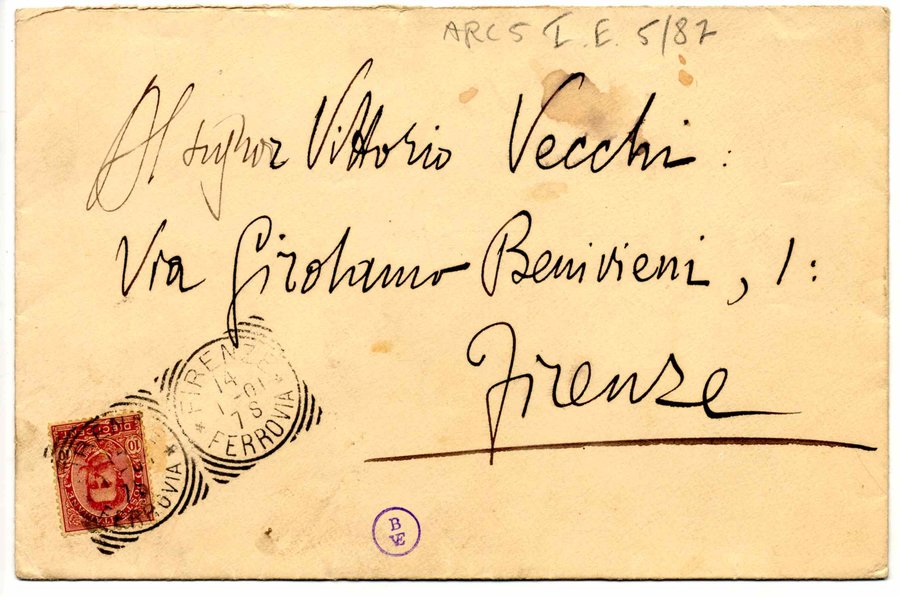 ARC 5 I. E. 5/87
Al signor Vittorio Vecchi :
Via Girolamo Benivieni, 1 :
Firenze
FIRENZE
14
1-01
7S
* FERROVIA *
FERROVIA *
10
B
VE